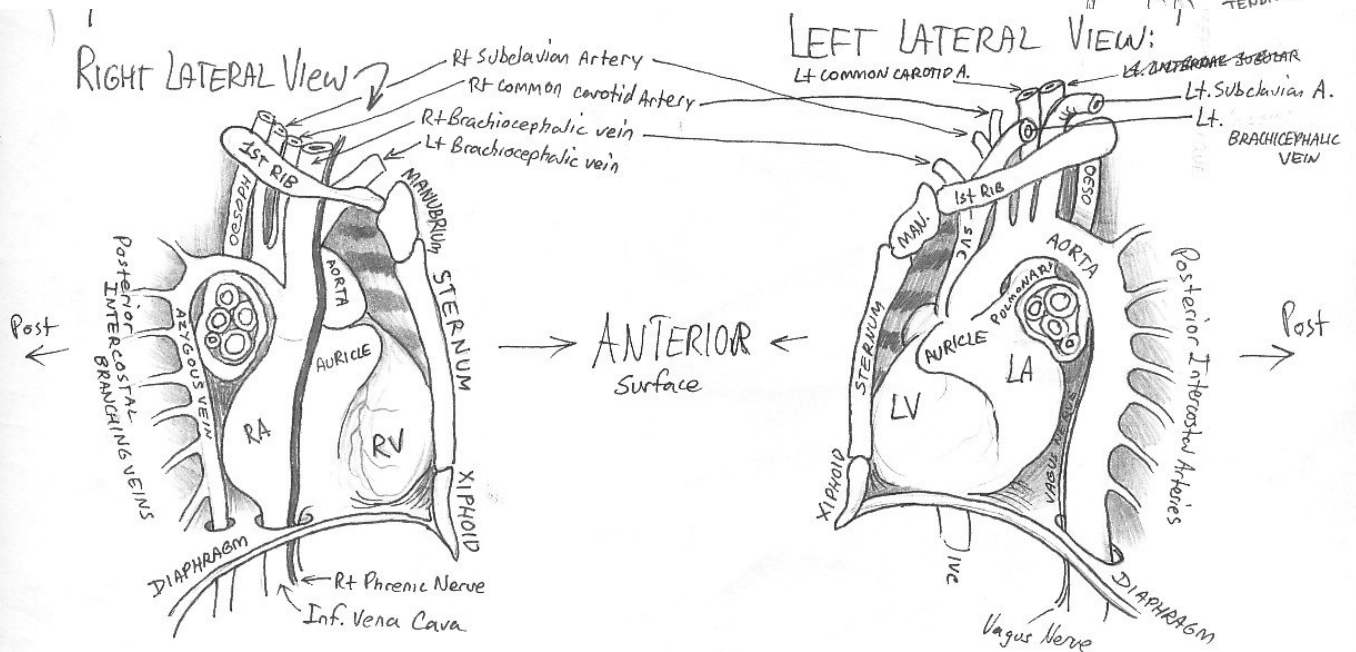 TENDIN
RIGHT LATERAL VIEW
Rt Subclavian Artery
Rt common carotid Artery
Rt Brachiocephalic vein
Lt Brachiocephalic vein
1ST RIB
OESOPH
MANUBRIUM
STERNUM
AORTA
AURICLE
AZYGOUS VEIN
Posterior
INTERCOSTAL
BRANCHING VEINS
Post
RA
RV
XIPHOID
DIAPHRAGM
Rt Phrenic Nerve
Inf. Vena Cava
ANTERIOR
Surface
LEFT LATERAL VIEW:
Lt COMMON CAROTID A.
Lt. INTERNAL JUGULAR
Lt. Subclavian A.
Lt.
BRACHICEPHALIC
VEIN
1st RIB
OESO
MAN.
SVC
AORTA
PULMONARY
STERNUM
AURICLE
LA
LV
VAGUS NERVE
Posterior Intercostal Arteries
Post
XIPHOID
IVC
DIAPHRAGM
Vagus Nerve